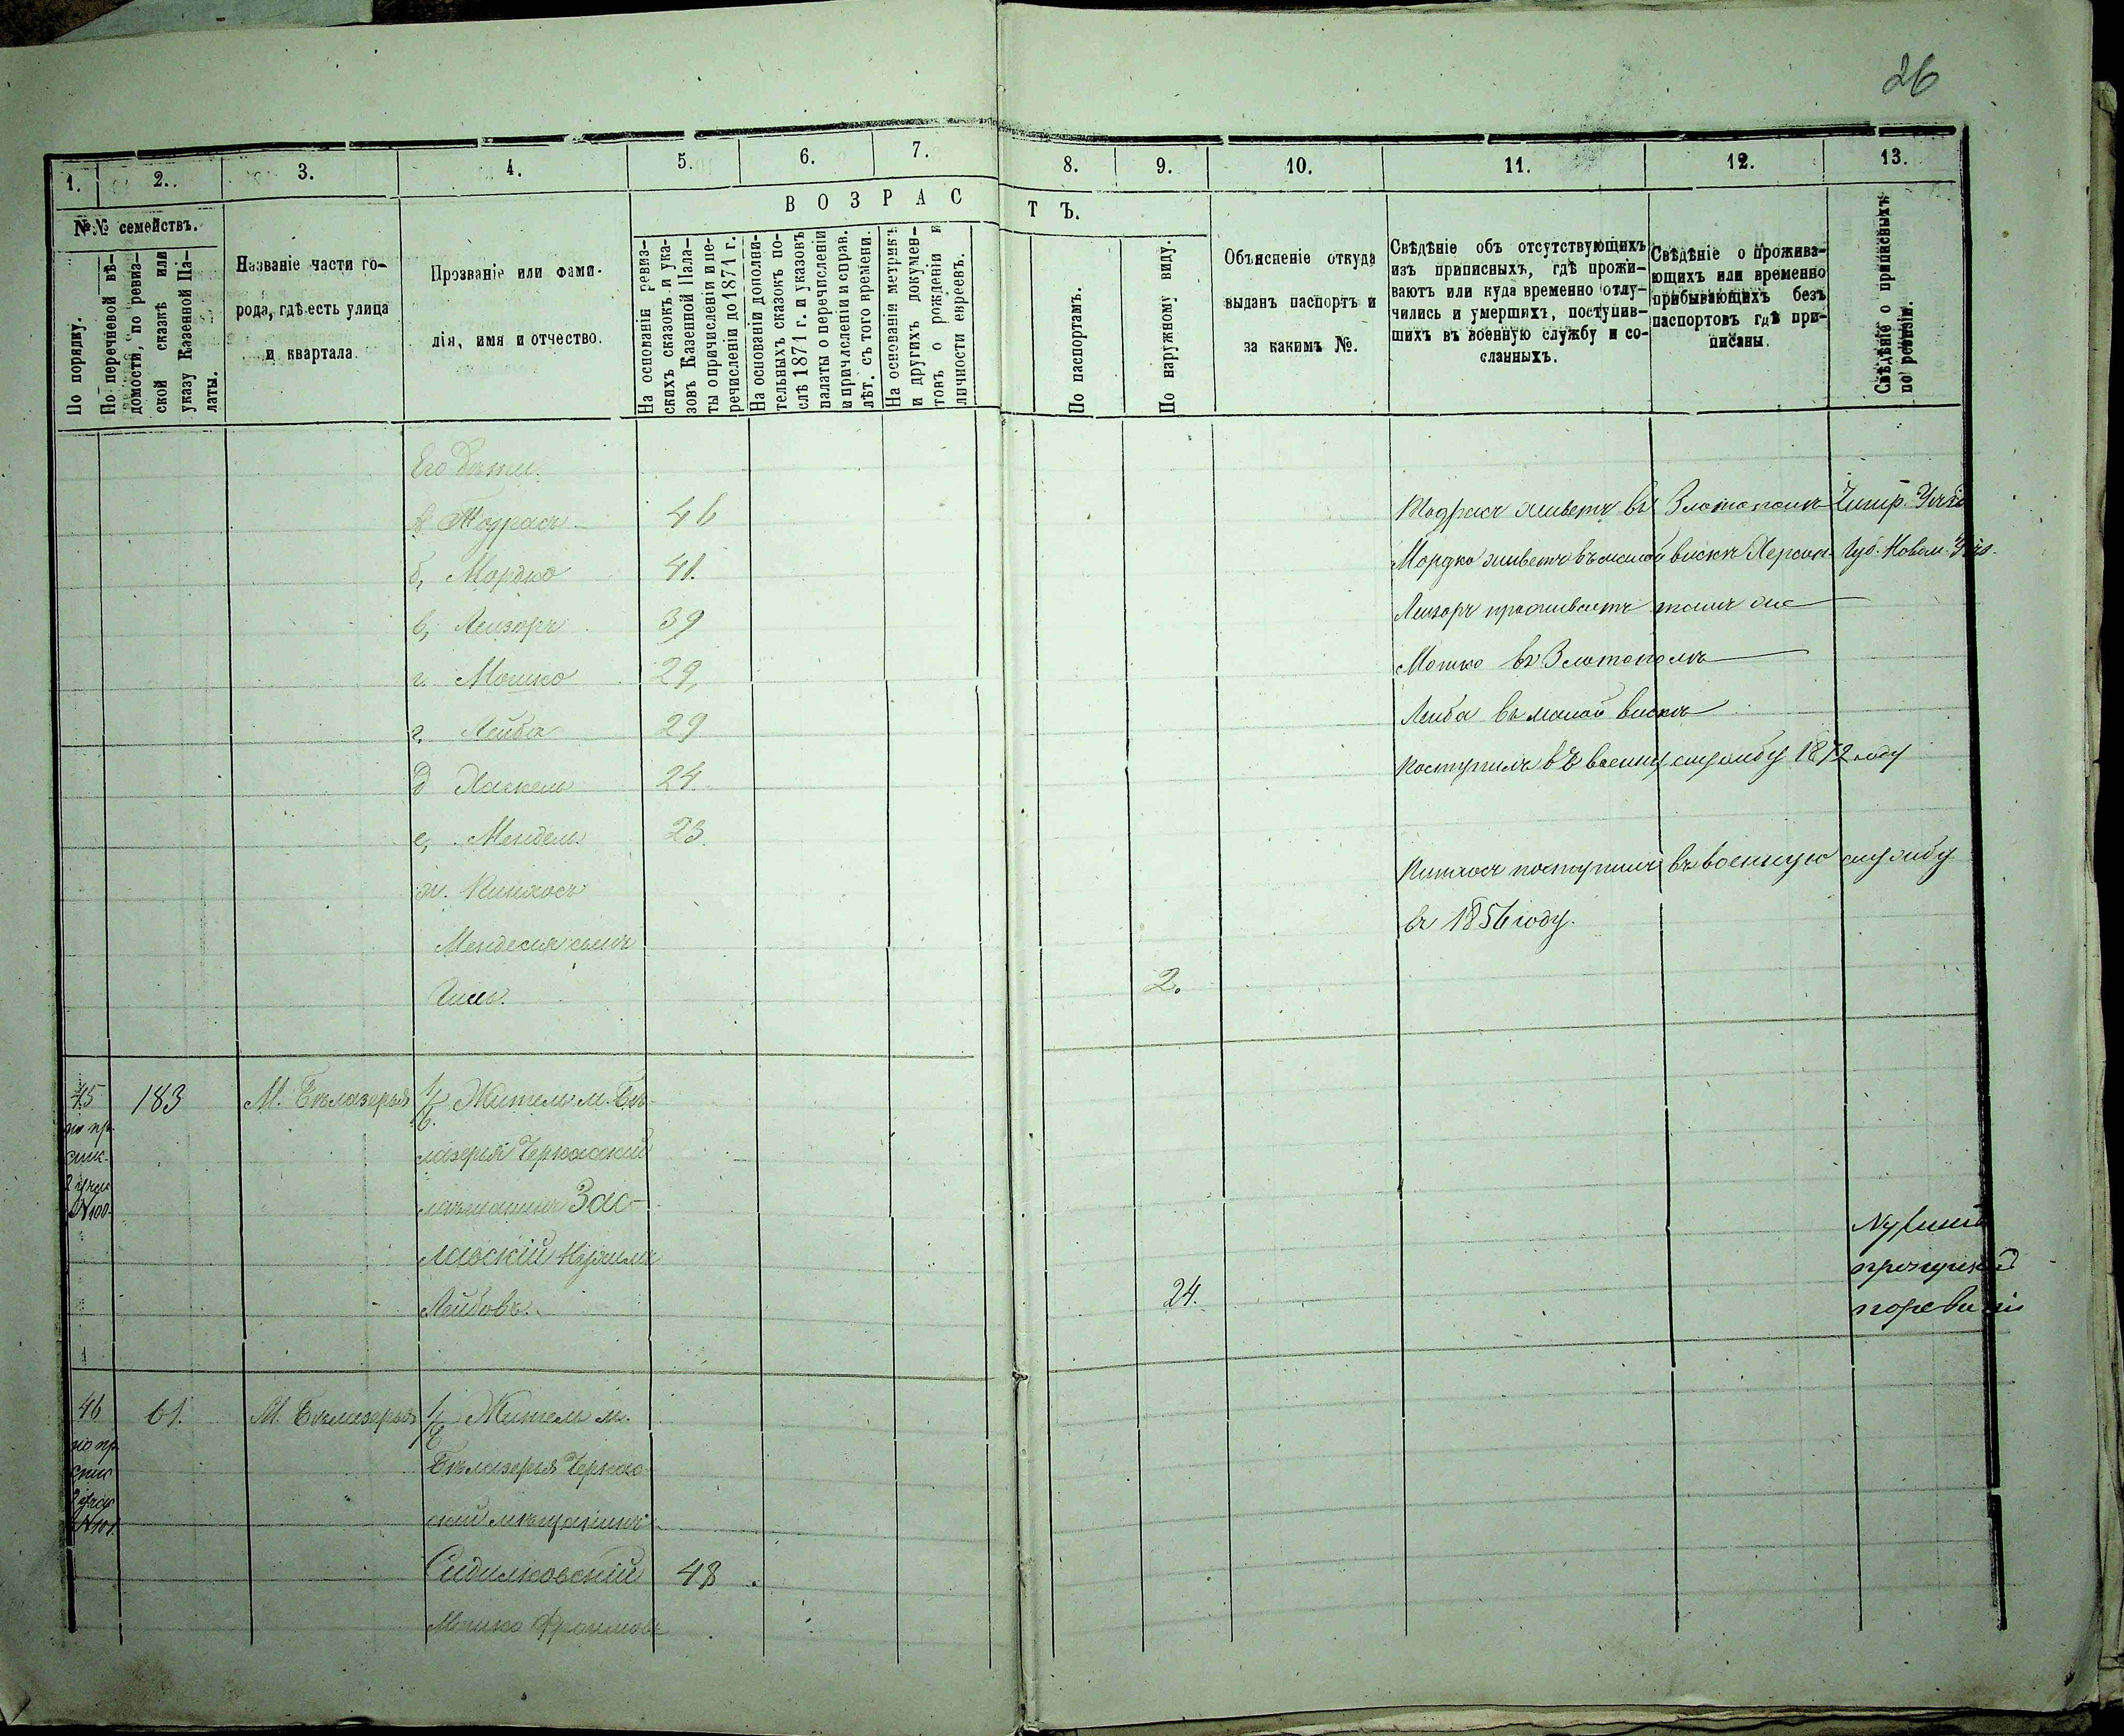 26
1. 2. 3. 4. 5. 6. 7. 8. 9. 10. 11. 12. 13.
В О З Р А С Т Ъ.
№№ семействъ.
По порядку.
По перечневой вѣ-
домости, по ревиз-
ской сказкѣ или
указу Казенной Па-
латы.
Названіе части го-
рода, гдѣ есть улица
и квартала.
Прозваніе или фами-
лія, имя и отчество.
На основаніи ревиз-
скихъ сказокъ и ука-
зовъ Казенной Пала-
ты о причисленіи и пе-
речисленіи до 1871 г.
На основаніи дополни-
тельныхъ сказокъ по-
слѣ 1871 г. и указовъ
палаты о перечисленіи
и причисленіи и справ.
лѣт. съ того времени.
На основаніи метрикъ
и другихъ докумен-
товъ о рожденіи и
личности евреевъ.
По паспортамъ.
По наружному виду.
Объясненіе откуда
выданъ паспортъ и
за какимъ №.
Свѣдѣніе объ отсутствующихъ
изъ приписныхъ, гдѣ прожи-
ваютъ или куда временно отлу-
чились и умершихъ, поступив-
шихъ въ военную службу и со-
сланныхъ.
Свѣдѣніе о прожива-
ющихъ или временно
прибывающихъ безъ
паспортовъ гдѣ при-
писаны.
Свѣдѣніе о приписныхъ
по ревизіи.
Его дѣти.
46
живетъ въ Златополѣ Чигир. Уѣзд
б, Мордко 41.
Мордко живетъ въ малой виске Херсон. Губ.
в, Лейзоръ 39
Лейзоръ проживаетъ тамъ же
г. Мошко 29,
Мошко въ Златополѣ
г. Лейба 29
Лейба въ малой виске
д Хаскель 24.
Поступилъ въ военну службу 1872 году
е, Мендель 23.
ж. Пинхосъ
Пинхосъ поступилъ въ военную службу
въ 1856 году.
Менделя сынъ
2.
45 183 М. Бѣлазерья Житель м. Бѣ-
лазерья Черкасскій
мѣщанинъ Зас-
лавскій
Лейбовъ. 24.
по пр.
спис.
2 учас
N 100
пропущенъ
по ревизіи
46 61. М. Бѣлазерья Житель м.
Бѣлазерья Черкас-
скій мѣщанинъ
Сидилковскій 48
Мошко Фроимовъ
по пр
спис
2 учас
N 101